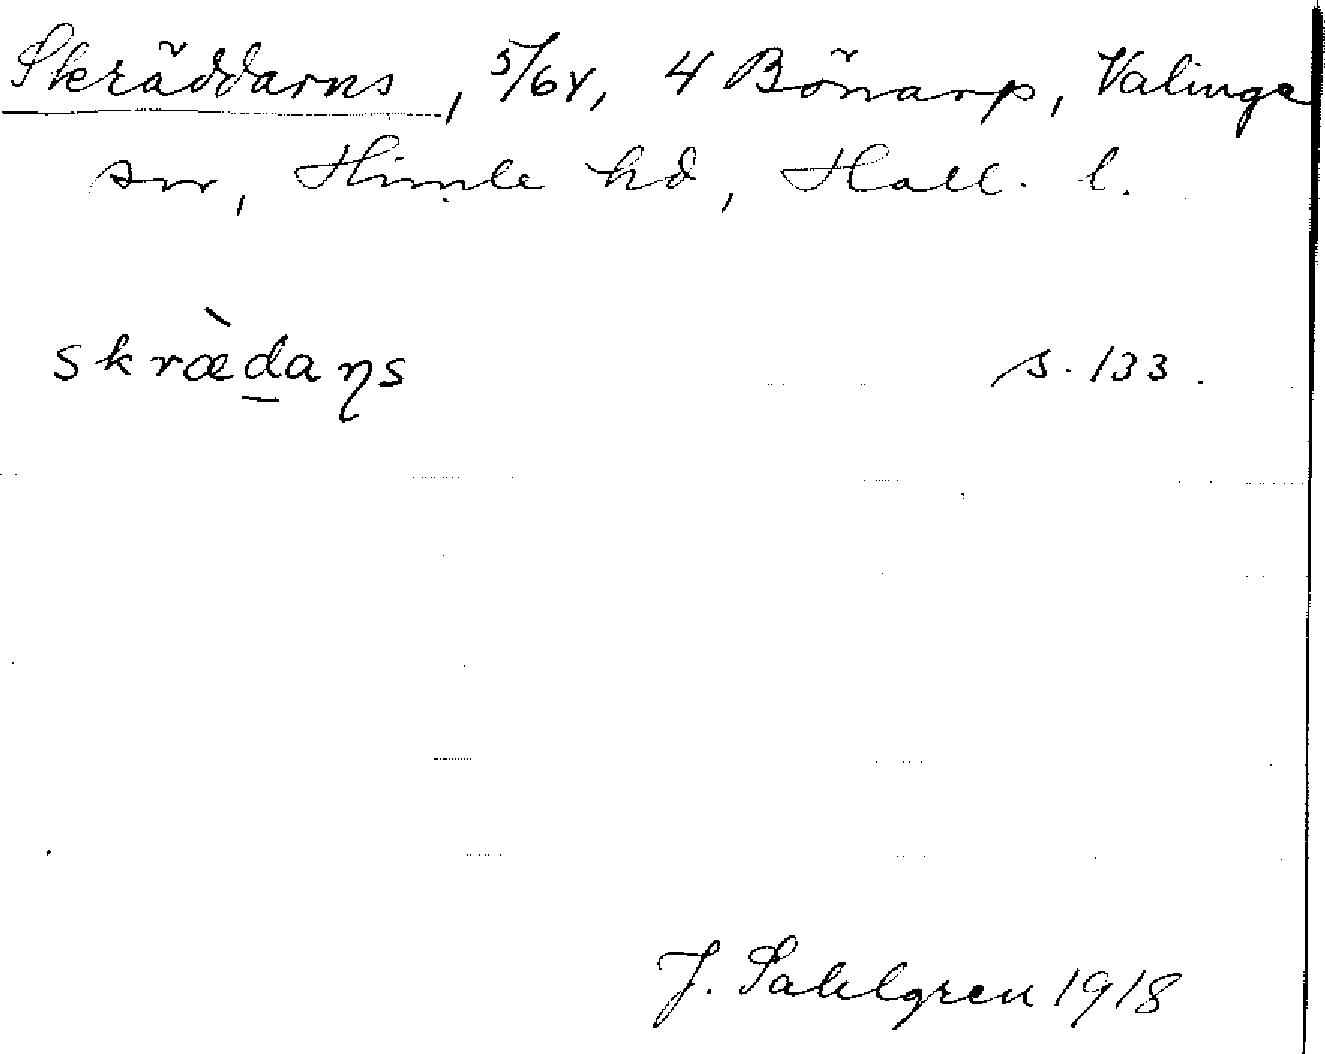 Skräddarns, 5/64, 4 Bönarp, Valinge
sn, Himle hd, Hall. l.
skræ̀d̲aꞃs s. 133.
J. Sahlgren 1918